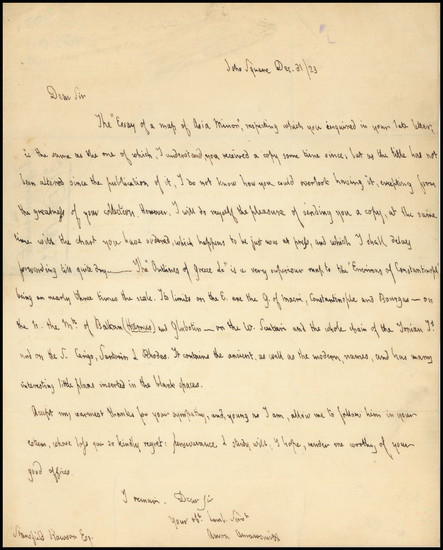 Soho Square Dec. 31/23
Dear Sir
The "Essay of a map of Asia Minor", respecting which you enquired in your late letter,
is the same as the one of which, I understand, you received a copy some time since; but as the title has not
been altered since the publication of it, I do not know how you could overlook having it, excepting from
the greatness of your collection. However, I will do myself the pleasure of sending you a copy, at the same
time with the chart you have ordered, which happens to be just now at press, and which I shall delay
forwarding till quite dry — The "Outlines of Greece &c" is a very superior map to the "Environs of Constantinople"
being on nearly three times the scale. Its limits on the E. are the G. of Macri, Constantinople and — on
the N. the Mts of Balkan (Hæmus) and — on the W. and the whole chain of the Ionian Is
and on the S. Cerigo, Santorin & Rhodes. It contains the ancient, as well as the modern, names, and has many
interesting little plans inserted in the blank spaces.
Accept my warmest thanks for your sympathy, and, young as I am, allow me to follow him in your
esteem, whose loss you so kindly regret: perseverance & study will, I hope, render me worthy of your
good offices.
I remain Dear Sir
Your obt. humb. Servt
Arrowsmith
Rawson Esq.